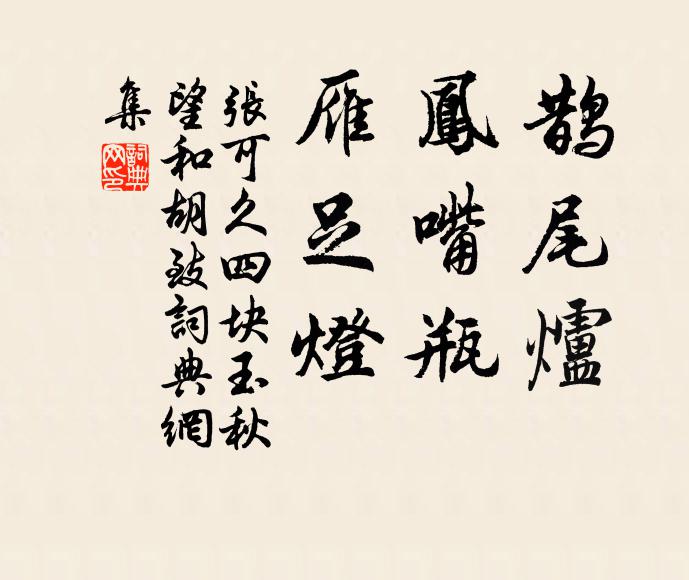 鹊尾爐
鳳嘴瓶
雁足燈
張可久四块玉秋
望和胡致詞典網
集
詞典網印